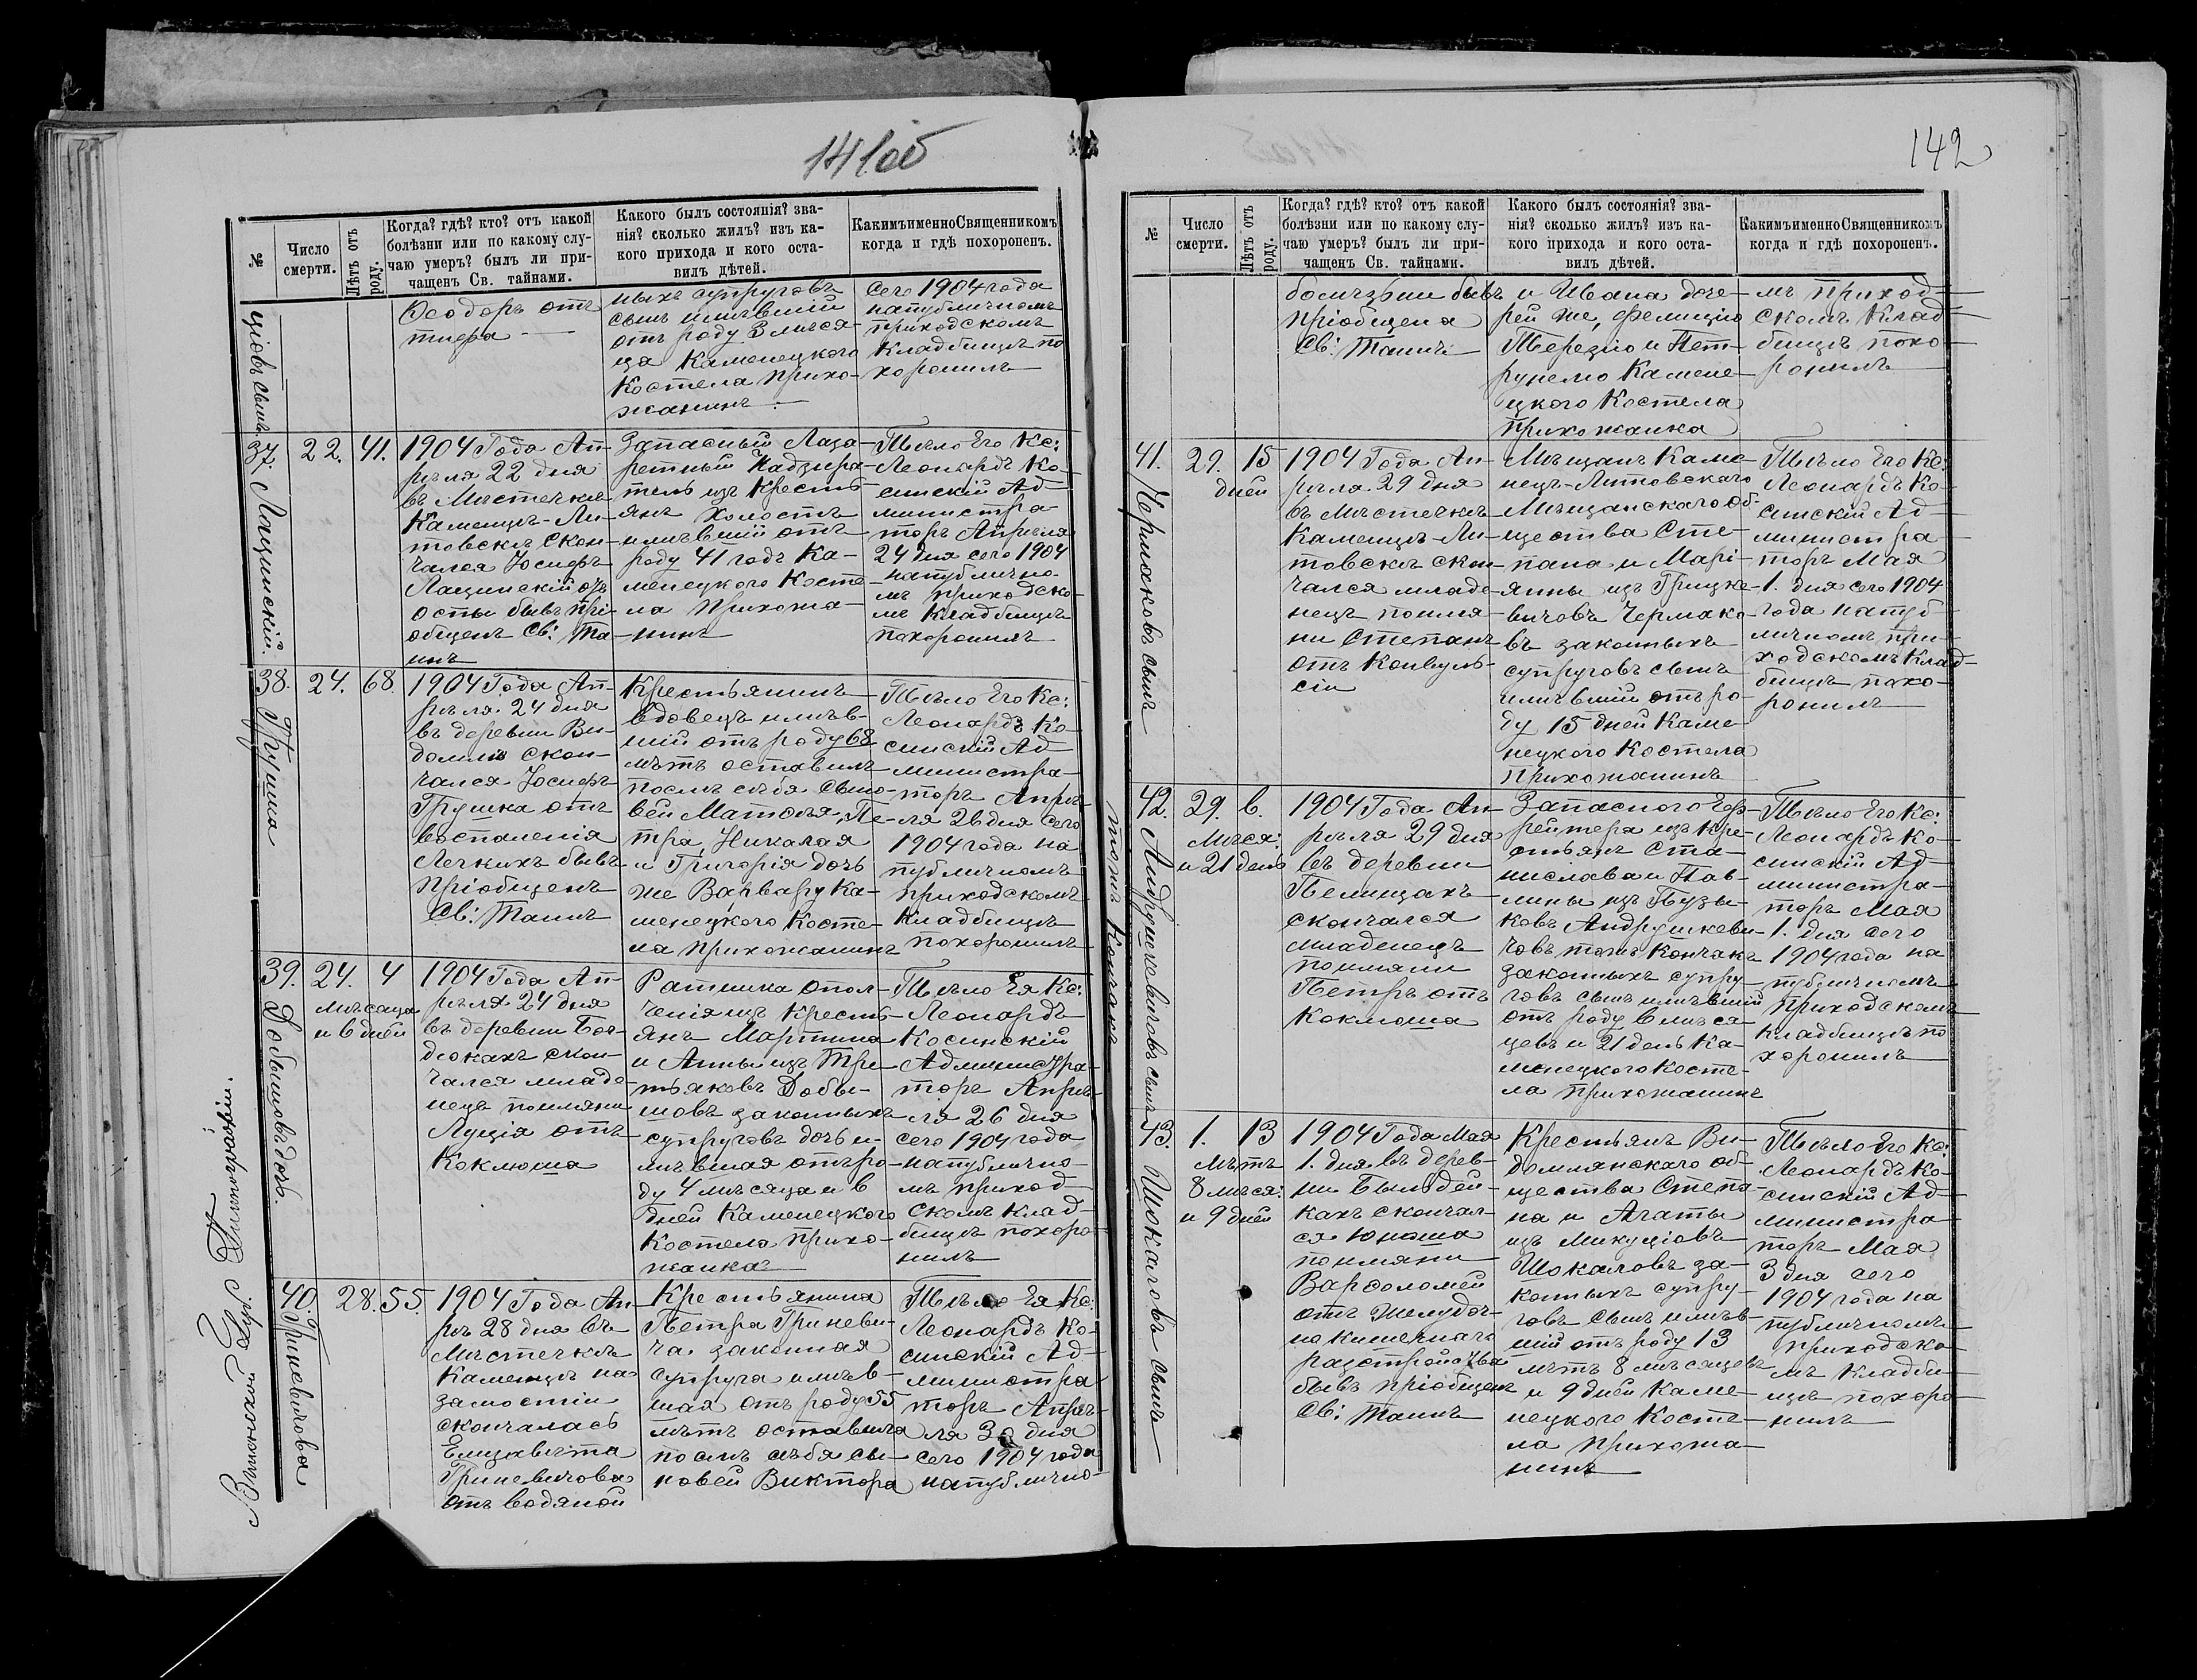 141 об
№
Число
смерти.
Лѣтъ отъ
роду.
Когда? гдѣ? кто? отъ какой
болѣзни или по какому слу-
чаю умеръ? былъ ли при-
чащенъ Св. тайнами.
Какого былъ состоянія? зва-
нія? сколько жилъ? изъ ка-
кого прихода и кого оста-
вилъ дѣтей.
Какимъ именно Священникомъ
когда и гдѣ похороненъ.
ціовъ сынъ.
Ѳеодоръ отъ
тифа
ныхъ супруговъ
сынъ имѣвшій
отъ роду 3 мѣся-
ца Каменецкого
Костела прихо-
жанинъ
сего 1904 года
напубличномъ
приходскомъ
Кладбищѣ по
хоронилъ
37.
Лащинскій.
22.
41.
1904 Года Ап-
рѣля 22 дня
въ Мѣстечкѣ
Каменцѣ-Ли-
товскѣ скон-
чался Іосифъ
Лащинскій отъ
оспы бывъ прі-
общенъ Св: Та-
инъ
Запасный Лаза-
ретный Надзира-
тель изъ Кресть-
янъ холостъ
имѣвшій отъ
роду 41 годъ Ка-
менецкого Косте-
ла прихожа-
нинъ
Тѣло Его Кс:
Леонардъ Ко-
синскій Ад-
министра
торъ Апрѣля
24 дня сего 1904
напублично-
мъ приходско-
мъ Кладбищѣ
похоронилъ
38.
Грушка
24.
68.
1904 Года Ап-
рѣля 24 дня
въ деревни Ви-
домлѣ скон-
чался Іосифъ
Грушка отъ
воспаленія
Легкихъ бывъ
пріобщенъ
Св: Таинъ
Крестьянинъ
вдовецъ имѣв-
шій отъ роду 68
лѣтъ оставилъ
послѣ себя сыно-
вей Матѳея, Пе-
тра, Николая
и Григорія дочь
же Варвару Ка-
менецкого Косте-
ла прихожанинъ
Тѣло Его Кс:
Леонардъ Ко-
синскій Ад
министра-
торъ Апрѣ-
ля 26 дня сего
1904 года на
публичномъ
приходскомъ
Кладбищѣ
похоронилъ
39.
Добышовъ дочь.
24.
4
мѣсяца
и 6 дней
1904 Года Ап-
рѣля 24 дня
въ деревни Бор-
дюкахъ скон-
чался младе-
нецъ поимяни
Луція отъ
Коклюша
Ратника опол-
ченія изъ Кресть-
янъ Мартина
и Анны изъ Тре-
тьяковъ Добы-
шовъ законныхъ
супруговъ дочь и-
мѣвшая отъ ро-
ду 4 мѣсяца и 6
дней Каменецкого
Костела прихо-
жанка
Тѣло Ея Кс:
Леонардъ
Косинскій
Администра-
торъ Апрѣ-
ля 26 дня
сего 1904 года
напублично-
мъ приход-
скомъ Клад-
бищѣ похоро-
нилъ
40.
Гриневичова
28.
55.
1904 Года Ап-
рѣ 28 дня въ
Мѣстечкѣ
Каменцѣ на
замостіи
скончалась
Елизавета
Гриневичова
отъ водяной
Крестьянина
Петра Гриневи-
ча законная
супруга имѣв-
шая отъ роду 55
лѣтъ оставила
послѣ себя сы-
новей Виктора
Тѣло Ея Кс:
Леонардъ Ко-
синскій Ад-
министра
торъ Апрѣ-
ля 30 дня
сего 1904 года
напублично-
Типографіи.
142
№
Число
смерти.
Лѣтъ отъ
роду.
Когда? гдѣ? кто? отъ какой
болѣзни или по какому слу-
чаю умеръ? былъ ли при-
чащенъ Св. тайнами.
Какого былъ состоянія? зва-
нія? сколько жилъ? изъ ка-
кого прихода и кого оста-
вилъ дѣтей.
Какимъ именно Священникомъ
когда и гдѣ похороненъ.
болѣзни бывъ
пріобщена
Св: Таинъ
и Ивана доче-
рей же, Фелицію
Терезію и Пет-
рунелю Камене-
цкого Костела
прихожанка
мъ приход-
скомъ Клад-
бищѣ похо-
ронилъ
41.
Чермаковъ сынъ
29.
15
дней
1904 Года Ап-
рѣля 29 дня
въ мѣстечкѣ
Каменцѣ-Ли-
товскѣ скон-
чался младе-
нецъ поимя-
ни Степанъ
отъ Конвуль-
сіи
Мѣщанъ Каме-
нецъ-Литовскаго
Мѣщанскаго Об-
щества Сте-
пана и Марі-
янны изъ Грицке-
вичовъ Чермако-
въ законныхъ
супруговъ сынъ
имѣвшій отъ ро-
ду 15 дней Каме-
нецкого Костела
прихожанинъ
Тѣло Его Кс:
Леонардъ Ко-
синскій Ад-
министра
торъ Мая
1. дня сего 1904
года напуб-
личномъ при-
ходскомъ Клад-
бищѣ похо-
ронилъ
42.
Андрушкевичовъ сынъ
тожъ Кончакъ
29.
6.
Мѣся:
и 21 день
1904 Года Ап-
рѣля 29 дня
въ деревни
Пелищахъ
скончался
младенецъ
поимяни
Петръ отъ
Коклюша
Запасного Еф-
рейтера изъ Кре-
стьянъ Ста-
нислава и Пав-
лины изъ Пузы-
ковъ Андрушкеви-
човъ тожъ Кончакъ
законныхъ супру-
говъ сынъ имѣвшій
отъ роду 6 мѣся-
цевъ и 21 день Ка-
менецкого Косте-
ла прихожанинъ
Тѣло Его Кс:
Леонардъ Ко-
синскій Ад-
министра-
торъ Мая
1. дня сего
1904 года на
публичномъ
приходскомъ
Кладбищѣ по
хоронилъ
43.
Шокаловъ сынъ
1.
13
лѣтъ
8 мѣся:
и 9 дней
1904 Года Мая
1. дня въ дерев-
ни Былодей-
кахъ скончал-
ся юноша
поимяни
Варѳоломей
отъ желудоч-
но кишечнаго
разстройства
бывъ пріобщенъ
Св: Таинъ
Крестьянъ Ви-
домлянскаго об-
щества Степа-
на и Агаты
изъ Микуціовъ
Шокаловъ за-
конныхъ супру-
говъ сынъ имѣв-
шій отъ роду 13
лѣтъ 8 мѣсяцевъ
и 9 дней Каме-
нецкого Косте-
ла прихожа-
нинъ
Тѣло Его Кс:
Леонардъ Ко-
синскій Ад-
министра-
торъ Мая
3 дня сего
1904 года на
публичномъ
приходско-
мъ Кладби-
щѣ похоро-
нилъ